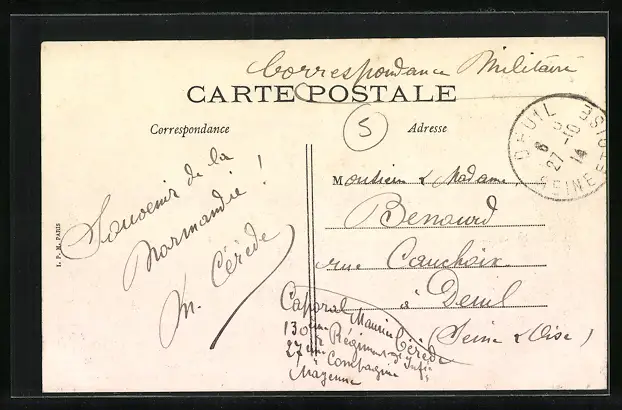 Correspondance Militaire
CARTE POSTALE
Correspondance
Adresse
5
DEUIL
6
27 -10
14
SEINE-ET-OISE
Souvenir de la
Normandie !
M. Cérède
Monsieur & Madame,
Benourd
rue Cauchoix
à Deuil
(Seine & Oise)
Caporal Maurice Cérède
130ème Régiment d'Infie
27ème Compagnie
Mayenne
I. P. M. PARIS